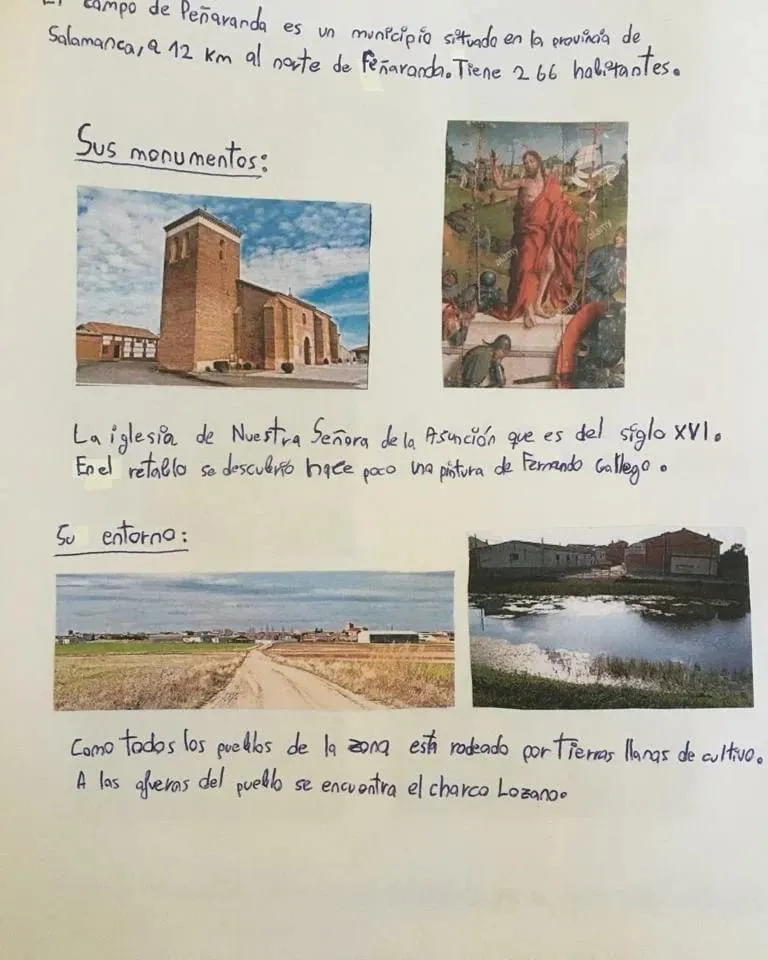 El campo de Peñaranda es un municipio situado en la provincia de
Salamanca, a 12 Km al norte de Peñaranda. Tiene 266 habitantes.
Sus monumentos:
alamy
alamy
La iglesia de Nuestra Señora de la Asunción que es del siglo XVI.
En el retablo se descubrió hace poco una pintura de Fernando Gallego.
Su entorno:
Como todos los pueblos de la zona está rodeado por Tierras llanas de cultivo.
A las afueras del pueblo se encuentra el charco Lozano.